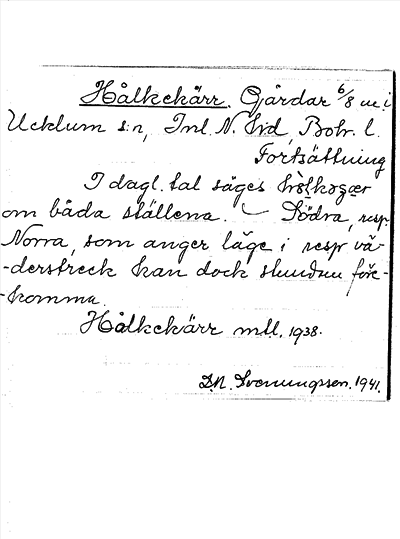 Hålkekärr. Gårdar 6/8 m i
Ucklum s:n, Inl. N. hd, Boh. l.
Fortsättning
I dagl. tal säges
om båda ställena. Södra, resp
Norra, som anger läge i resp vä-
-derstreck kan dock stundom före-
-komma.
Hålkekärr mtl. 1938.
D.N. Svenungsson. 1941.